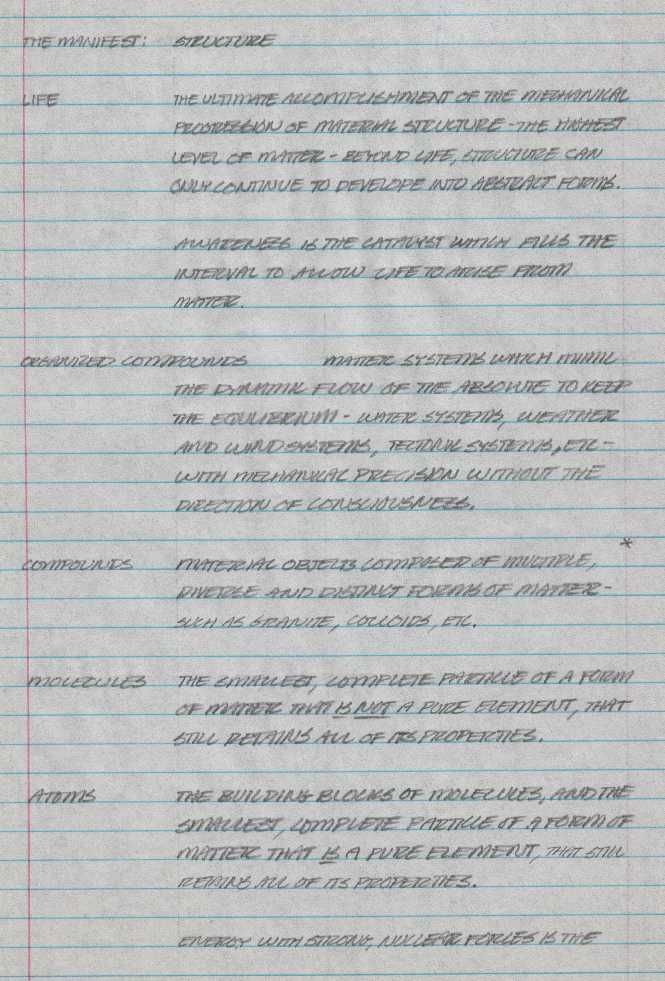 THE MANIFEST: STRUCTURE
LIFE THE ULTIMATE ACCOMPLISHMENT OF THE MECHANICAL
PROGRESSION OF MATERIAL STRUCTURE - THE HIGHEST
LEVEL OF MATTER - BEYOND LIFE, STRUCTURE CAN
ONLY CONTINUE TO DEVELOPE INTO ABSTRACT FORMS.
AWARENESS IS THE CATALYST WHICH FILLS THE
INTERVAL TO ALLOW LIFE TO ARISE FROM
MATTER.
ORGANIZED COMPOUNDS MATTER SYSTEMS WHICH MIMIC
THE DYNAMIC FLOW OF THE ABSOLUTE TO KEEP
THE EQUILIBRIUM - WATER SYSTEMS, WEATHER
AND WIND SYSTEMS, TECTONIC SYSTEMS, ETC -
WITH MECHANICAL PRECISION WITHOUT THE
DIRECTION OF CONSCIOUSNESS.
*
COMPOUNDS MATERIAL OBJECTS COMPOSED OF MULTIPLE,
DIVERSE AND DISTINCT FORMS OF MATTER -
SUCH AS GRANITE, COLLOIDS, ETC.
MOLECULES THE SMALLEST, COMPLETE PARTICLE OF A FORM
OF MATTER THAT IS NOT A PURE ELEMENT, THAT
STILL RETAINS ALL OF ITS PROPERTIES.
ATOMS THE BUILDING BLOCKS OF MOLECULES, AND THE
SMALLEST, COMPLETE PARTICLE OF A FORM OF
MATTER THAT IS A PURE ELEMENT, THAT STILL
RETAINS ALL OF ITS PROPERTIES.
ENERGY WITH STRONG, NUCLEAR FORCES IS THE